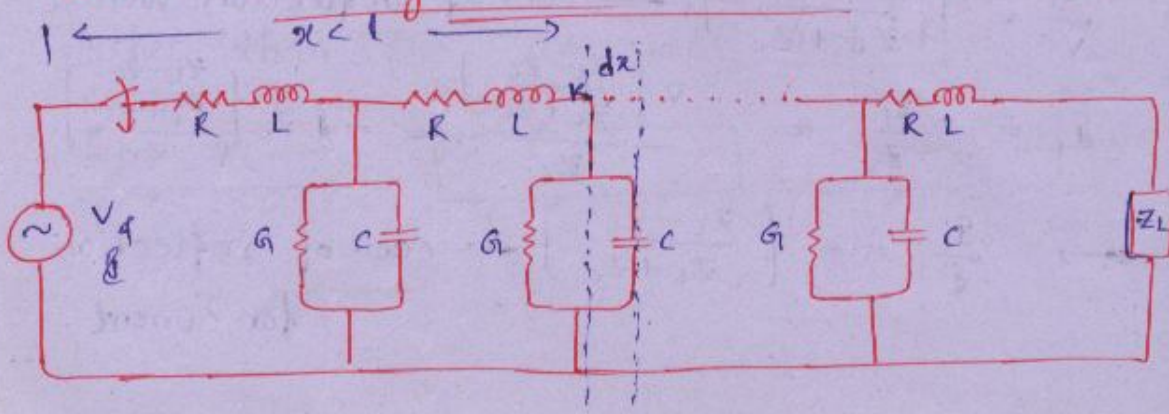 l
x < l
dx
K
R L R L R L
V
G C G C G C
Z_L